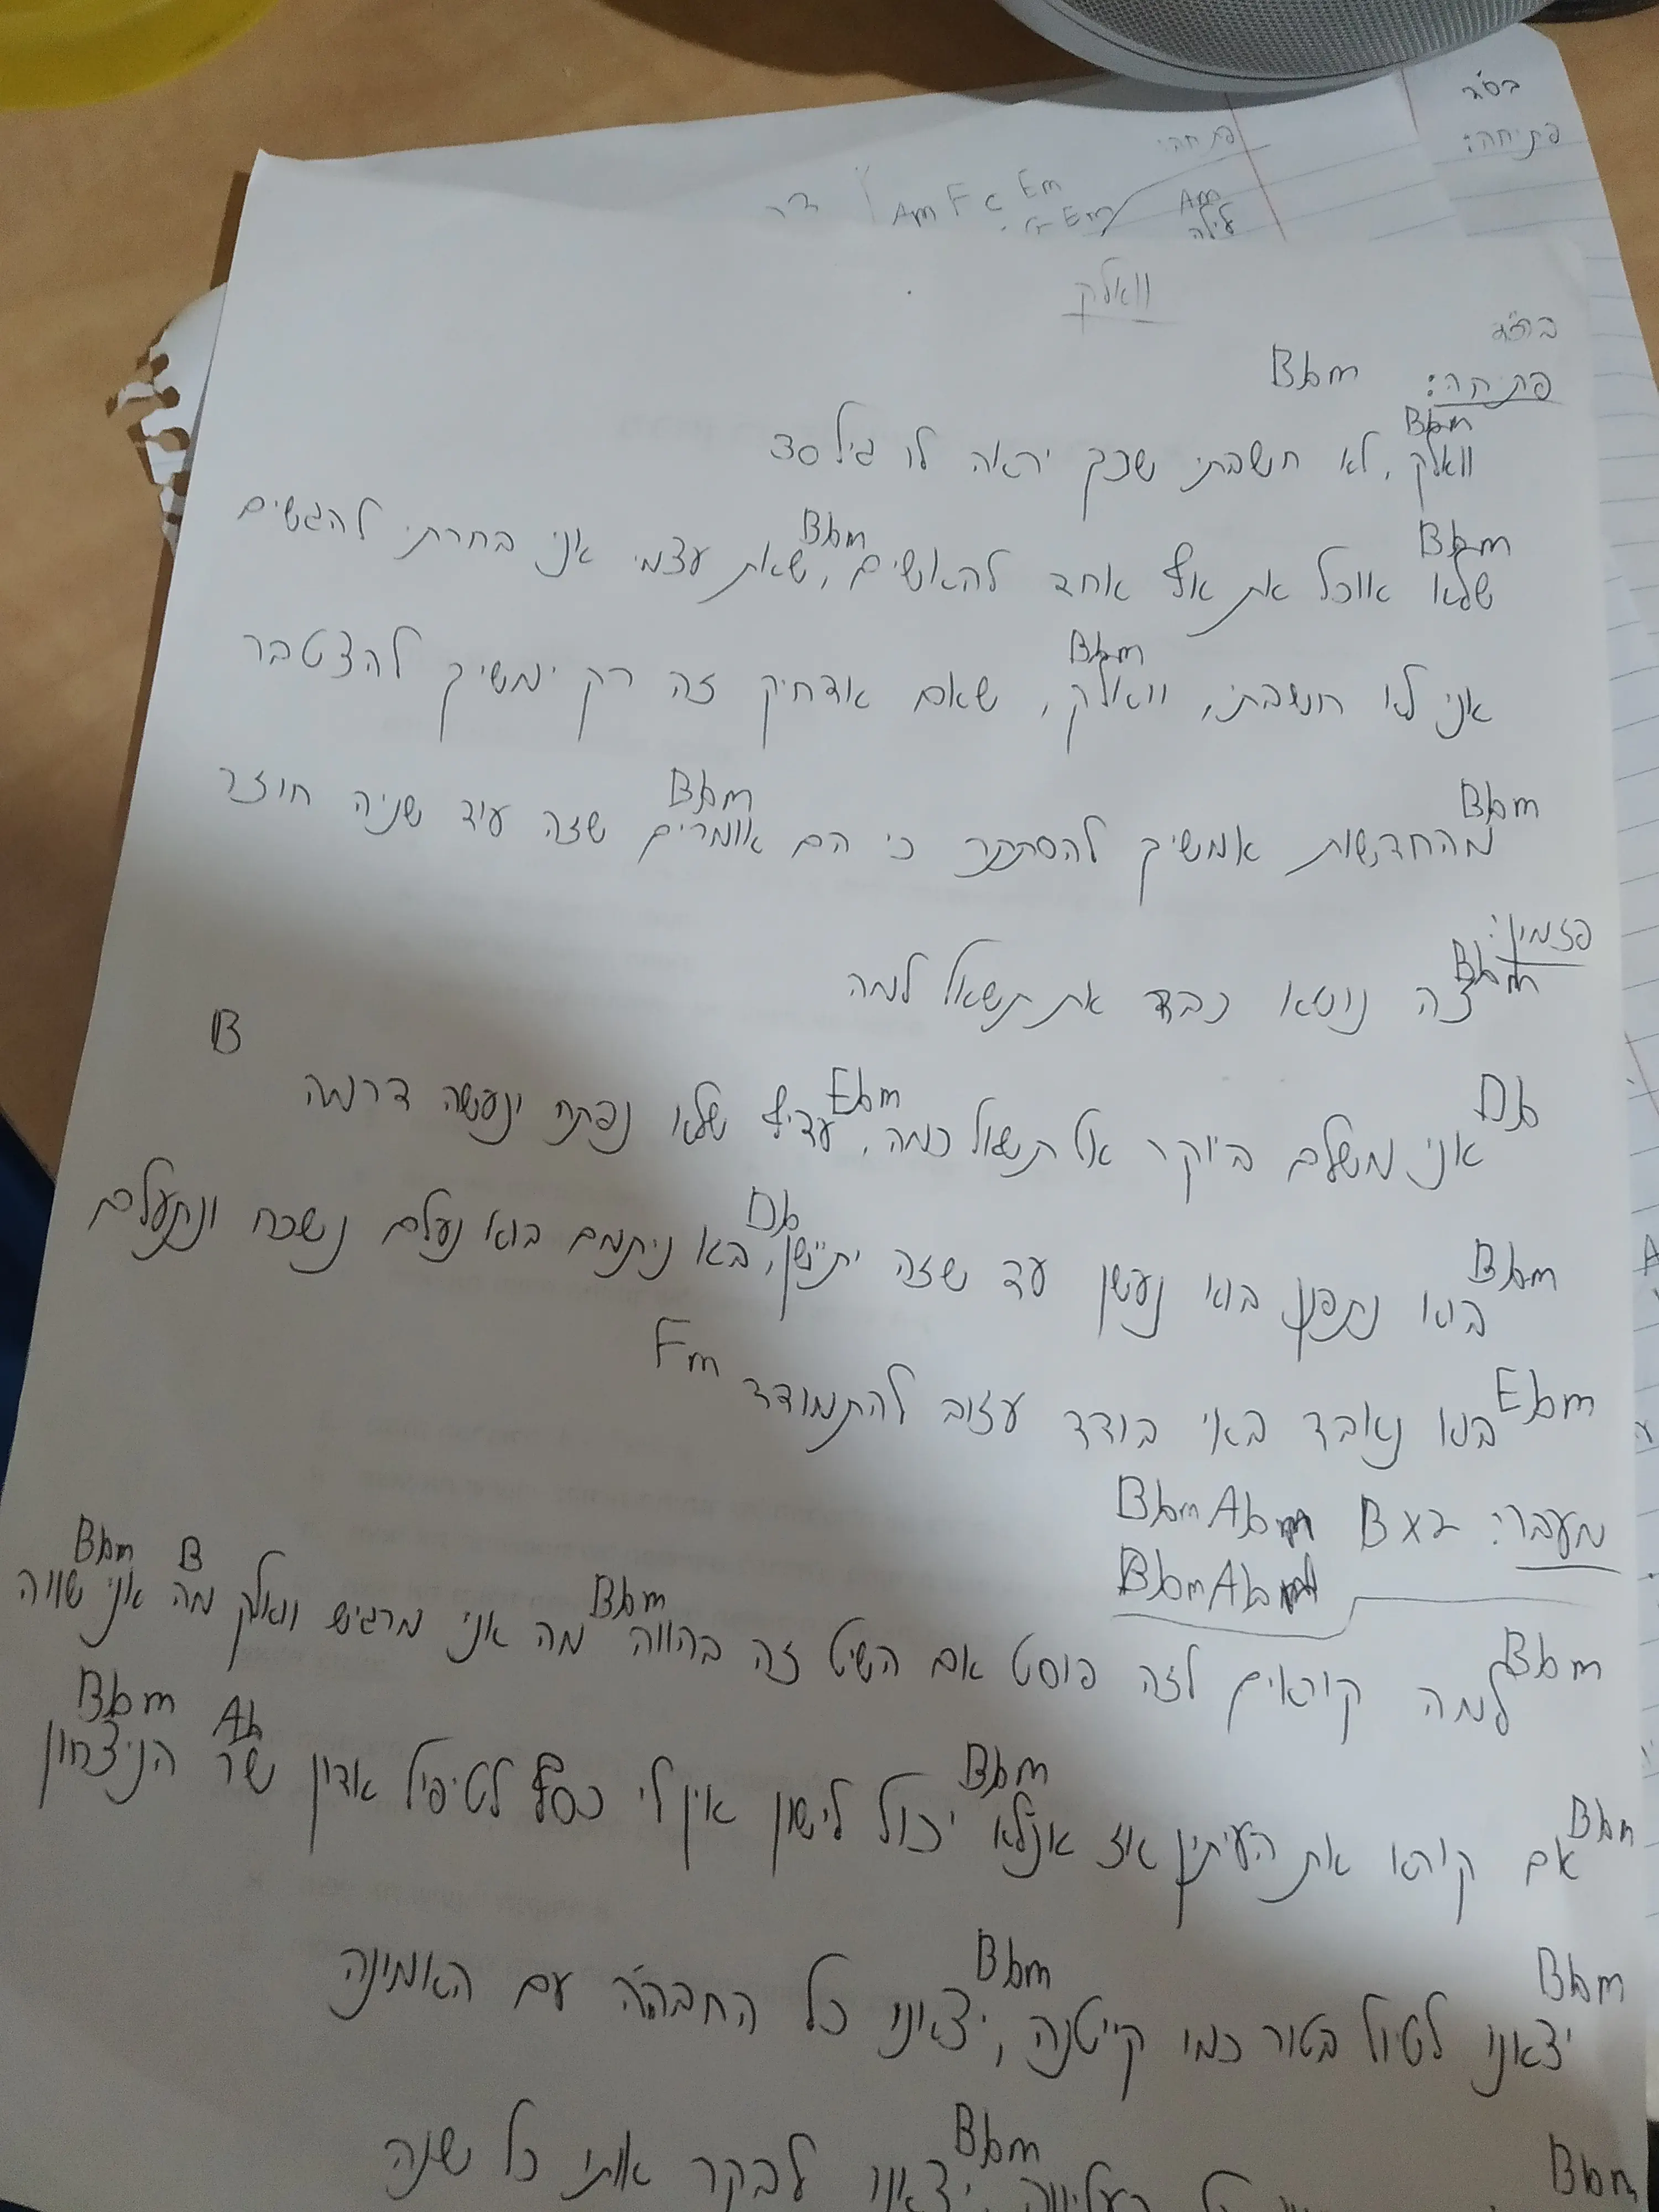 בס"ד
פתיחה:
פתיחה:
Am F C Em
Em
Am
וואלק
בס"ד
פתיחה: Bbm
Bbm
וואלק, לא חשבתי שכך יראה לו גיל 30
Bbm Bbm
שלא אוכל את אף אחד להאשים, שאת עצמי אני בחרתי להגשים
Bbm
אני לא חשבתי, וואלק, שאם אדחיק זה רק ימשיך להצטבר
Bbm Bbm
מהחדשות אמשיך להסתתר כי הם אומרים שזה עוד שניה חוזר
פזמון:
Bbm
זה נושא כבד את תשאל למה
Db Ebm B
אני משלם ביוקר אל תשאל כמה, עדיף שלא נפתח ונעשה דרמה
Bbm Db
בוא נתפנן בוא נעשן עד שזה יתיישן, בא ניתמם בוא נעלם נשכח ונתעלם
Ebm Fm
בוא נאבד באי בודד עזוב להתמודד
מעבר: Bx2 BbmAbm
BbmAbm
Bbm Bbm B Bbm
למה קוראים לזה פוסט אם השיט זה בהווה מה אני מרגיש וואלק מה אני שווה
Bbm Bbm Ab Bbm
אם קורא את העיתון אז אני לא יכול לישון אין לי כסף לטיפול אדון שר הניצחון
Bbm Bbm
יצאנו לטיול בטור כמו קייטנה, יצאנו כל החבר'ה עם האמונה
Bbm Bbm
יצאנו לבקר אותי כל שנה